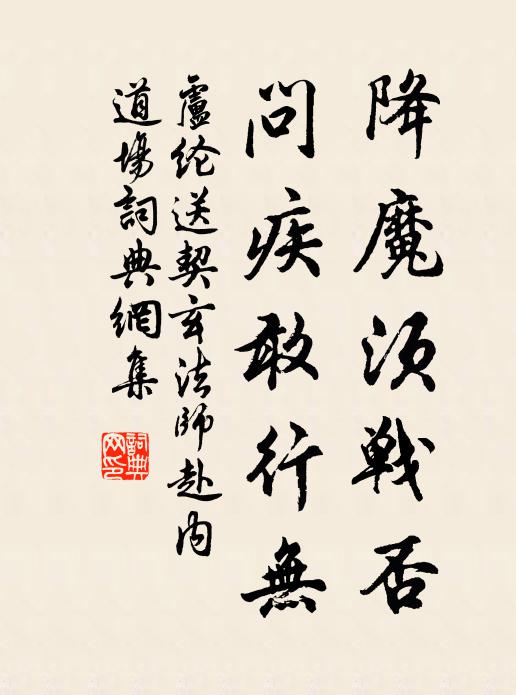 降魔须戰否
問疾敢行無
盧纶送契玄法師赴内
道場詞典網集
詞典
网印